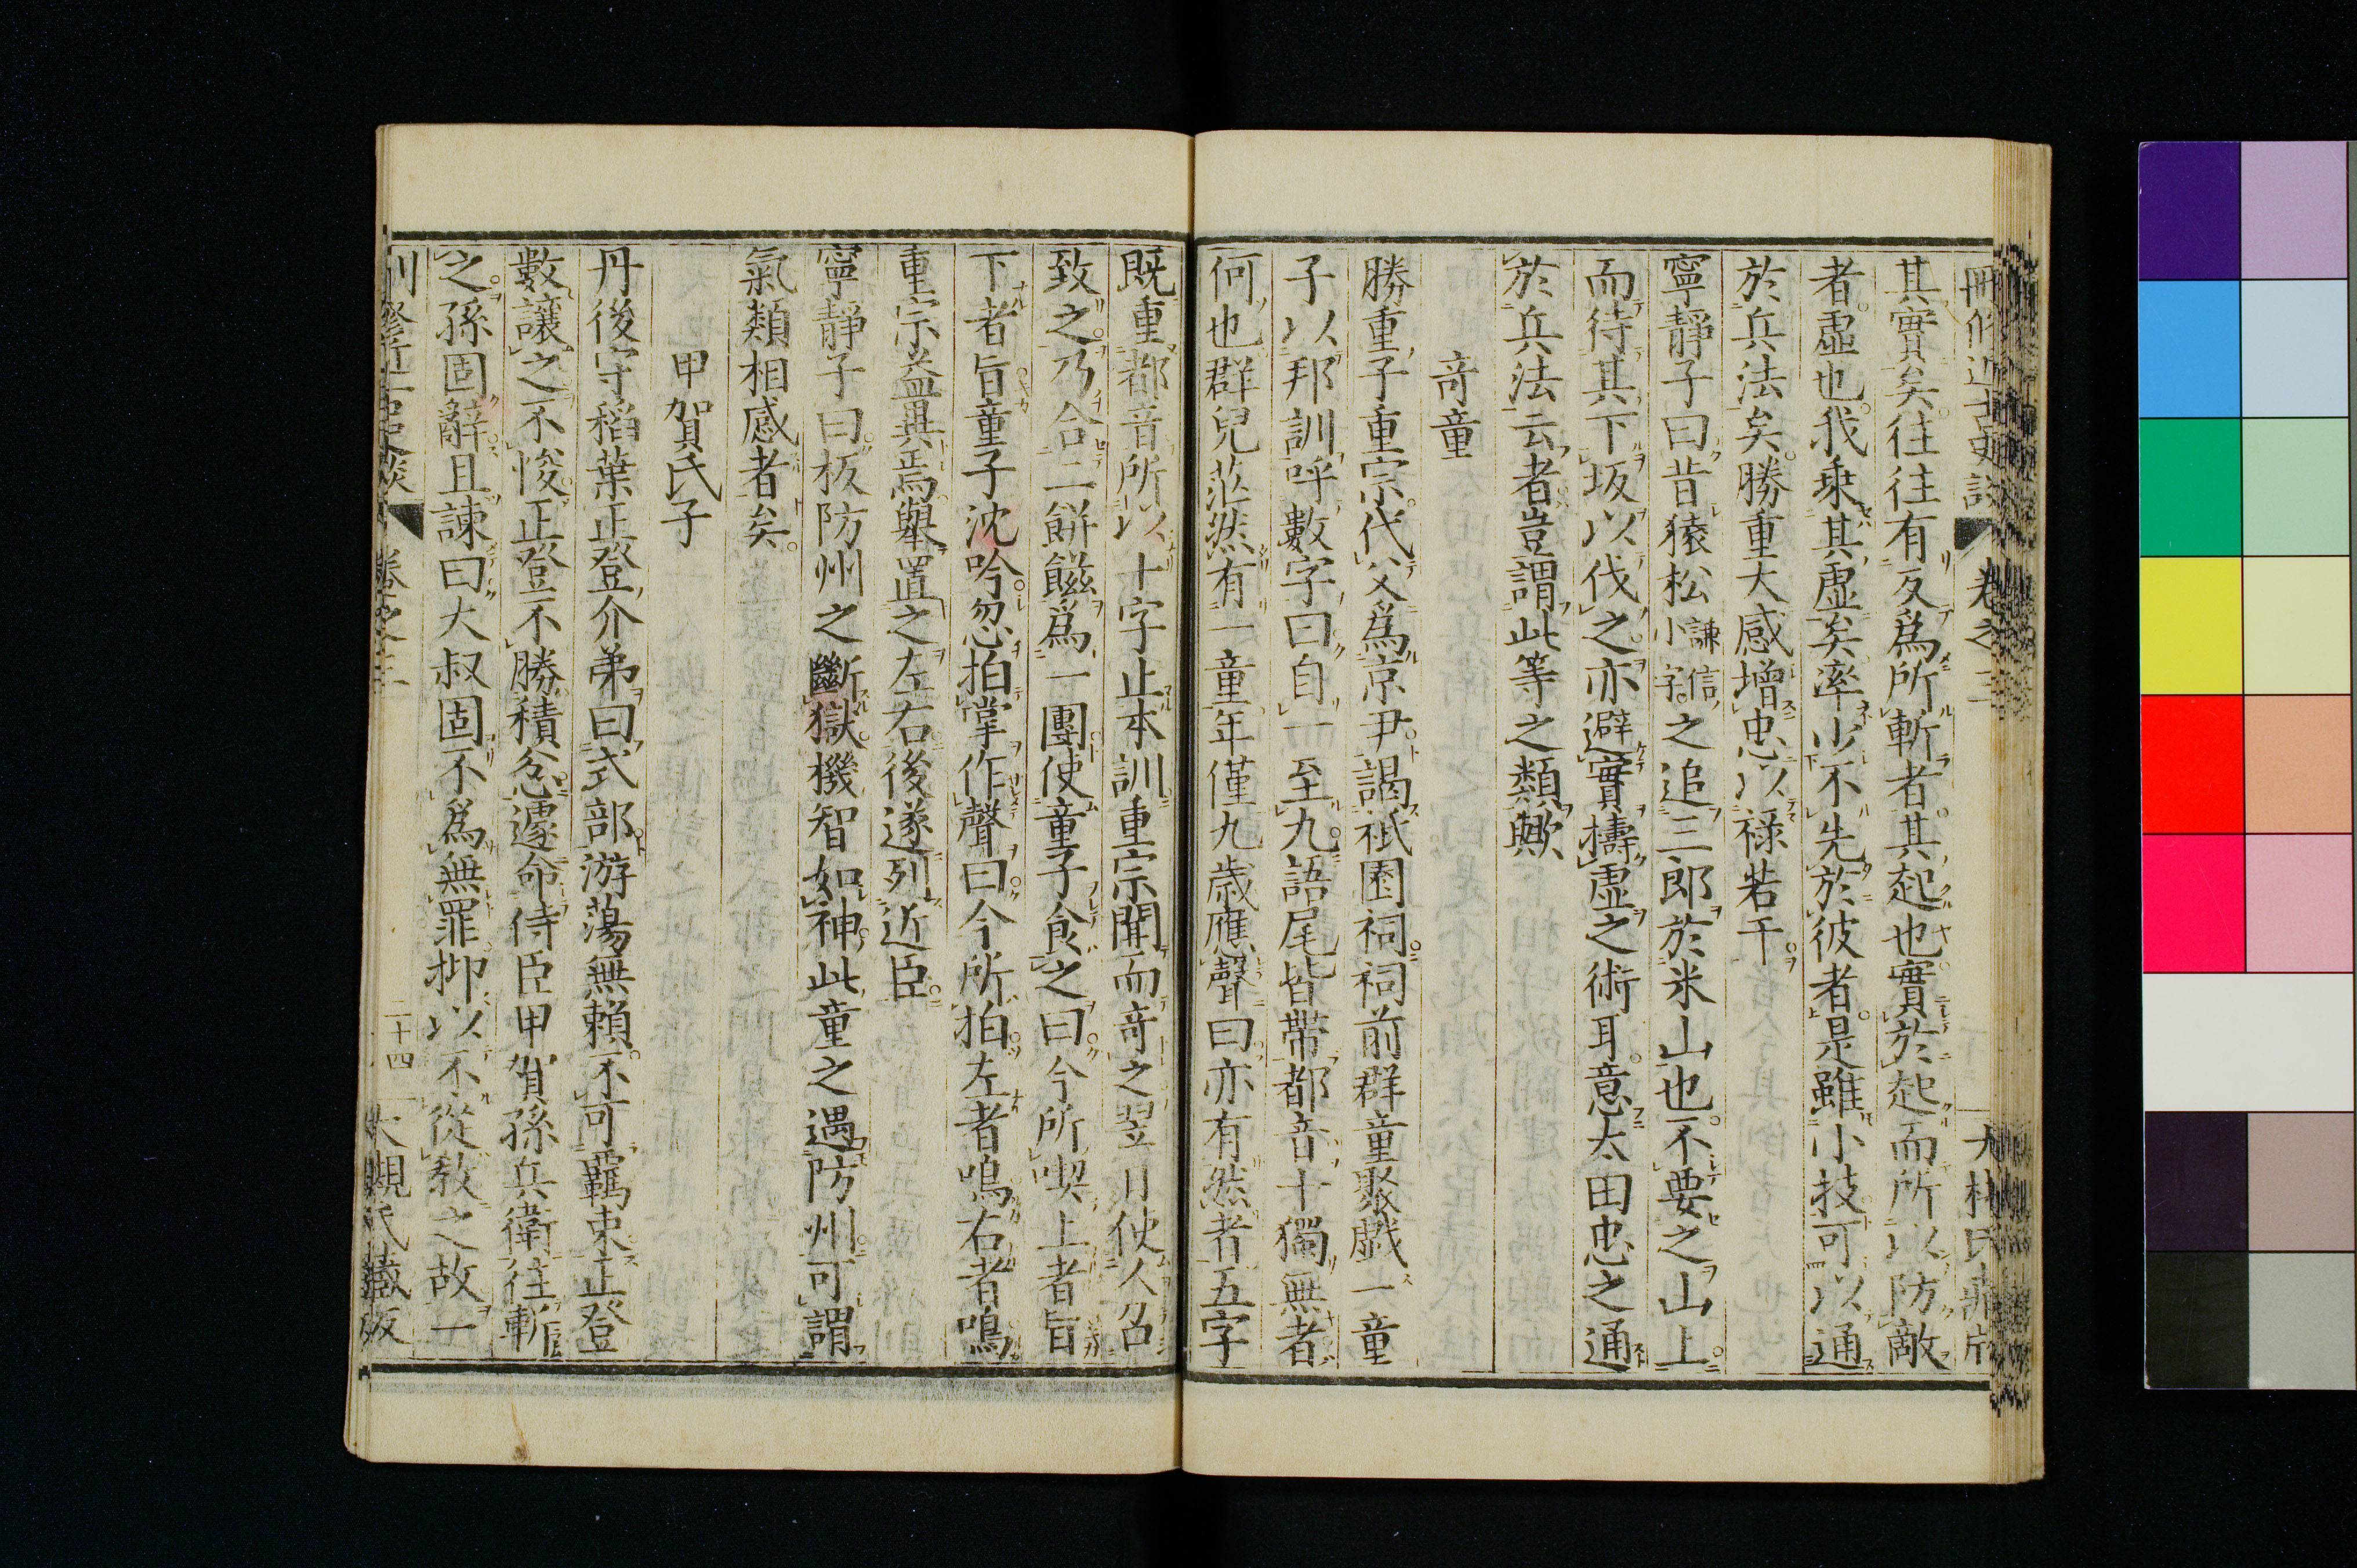 刪修近古史談 卷之三 大槻氏藏版
其實矣往往有反爲所斬者其起也實於起而所以防敵
者虛也我乘其虛矣率少不先於彼者是雖小技可以通
於兵法矣勝重大感增忠以祿若干
寧靜子曰昔猿松謙信小字之追三郎於米山也不要之山上
而待其下坂以伐之亦避實擣虛之術耳意太田忠之通
於兵法云者豈謂此等之類歟
奇童
勝重子重宗代父爲京尹謁祇園祠祠前群童聚戲一童
子以邦訓呼數字曰自一至九語尾皆帶都音十獨無者
何也群兒茫然有一童年僅九歲應聲曰亦有然者五字
既重都音所以十字止本訓重宗聞而奇之翌日使人召
致之乃合二餠餌爲一團使童子食之曰今所喫上者旨
下者旨童子沈吟忽拍掌作聲曰今所拍左者鳴右者鳴
重宗益異焉舉置之左右後遂列近臣
寧靜子曰板防州之斷獄機智如神此童之遇防州可謂
氣類相感者矣
甲賀氏子
丹後守稻葉正登介弟曰式部游蕩無賴不可羈束正登
數讓之不悛正登不勝積忿遽命侍臣甲賀孫兵衛往斬
之孫固辭且諫曰大叔固不爲無罪抑以不從敎之故一
刪修近古史談 卷之三 二十四 大槻氏藏版